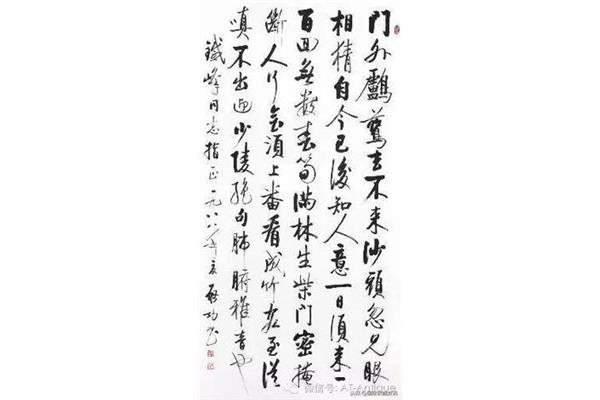 門外鸕鷀去不來沙頭忽見眼
相猜自今已後知人意一日須來一
百回無數春筍滿林生柴門密掩
斷人行會須上番看成竹客至從
嗔不出迎少陵絕句肺腑雅音也
鐵峰同志指正一九八八年夏啟功書
微信号: AT-Antique